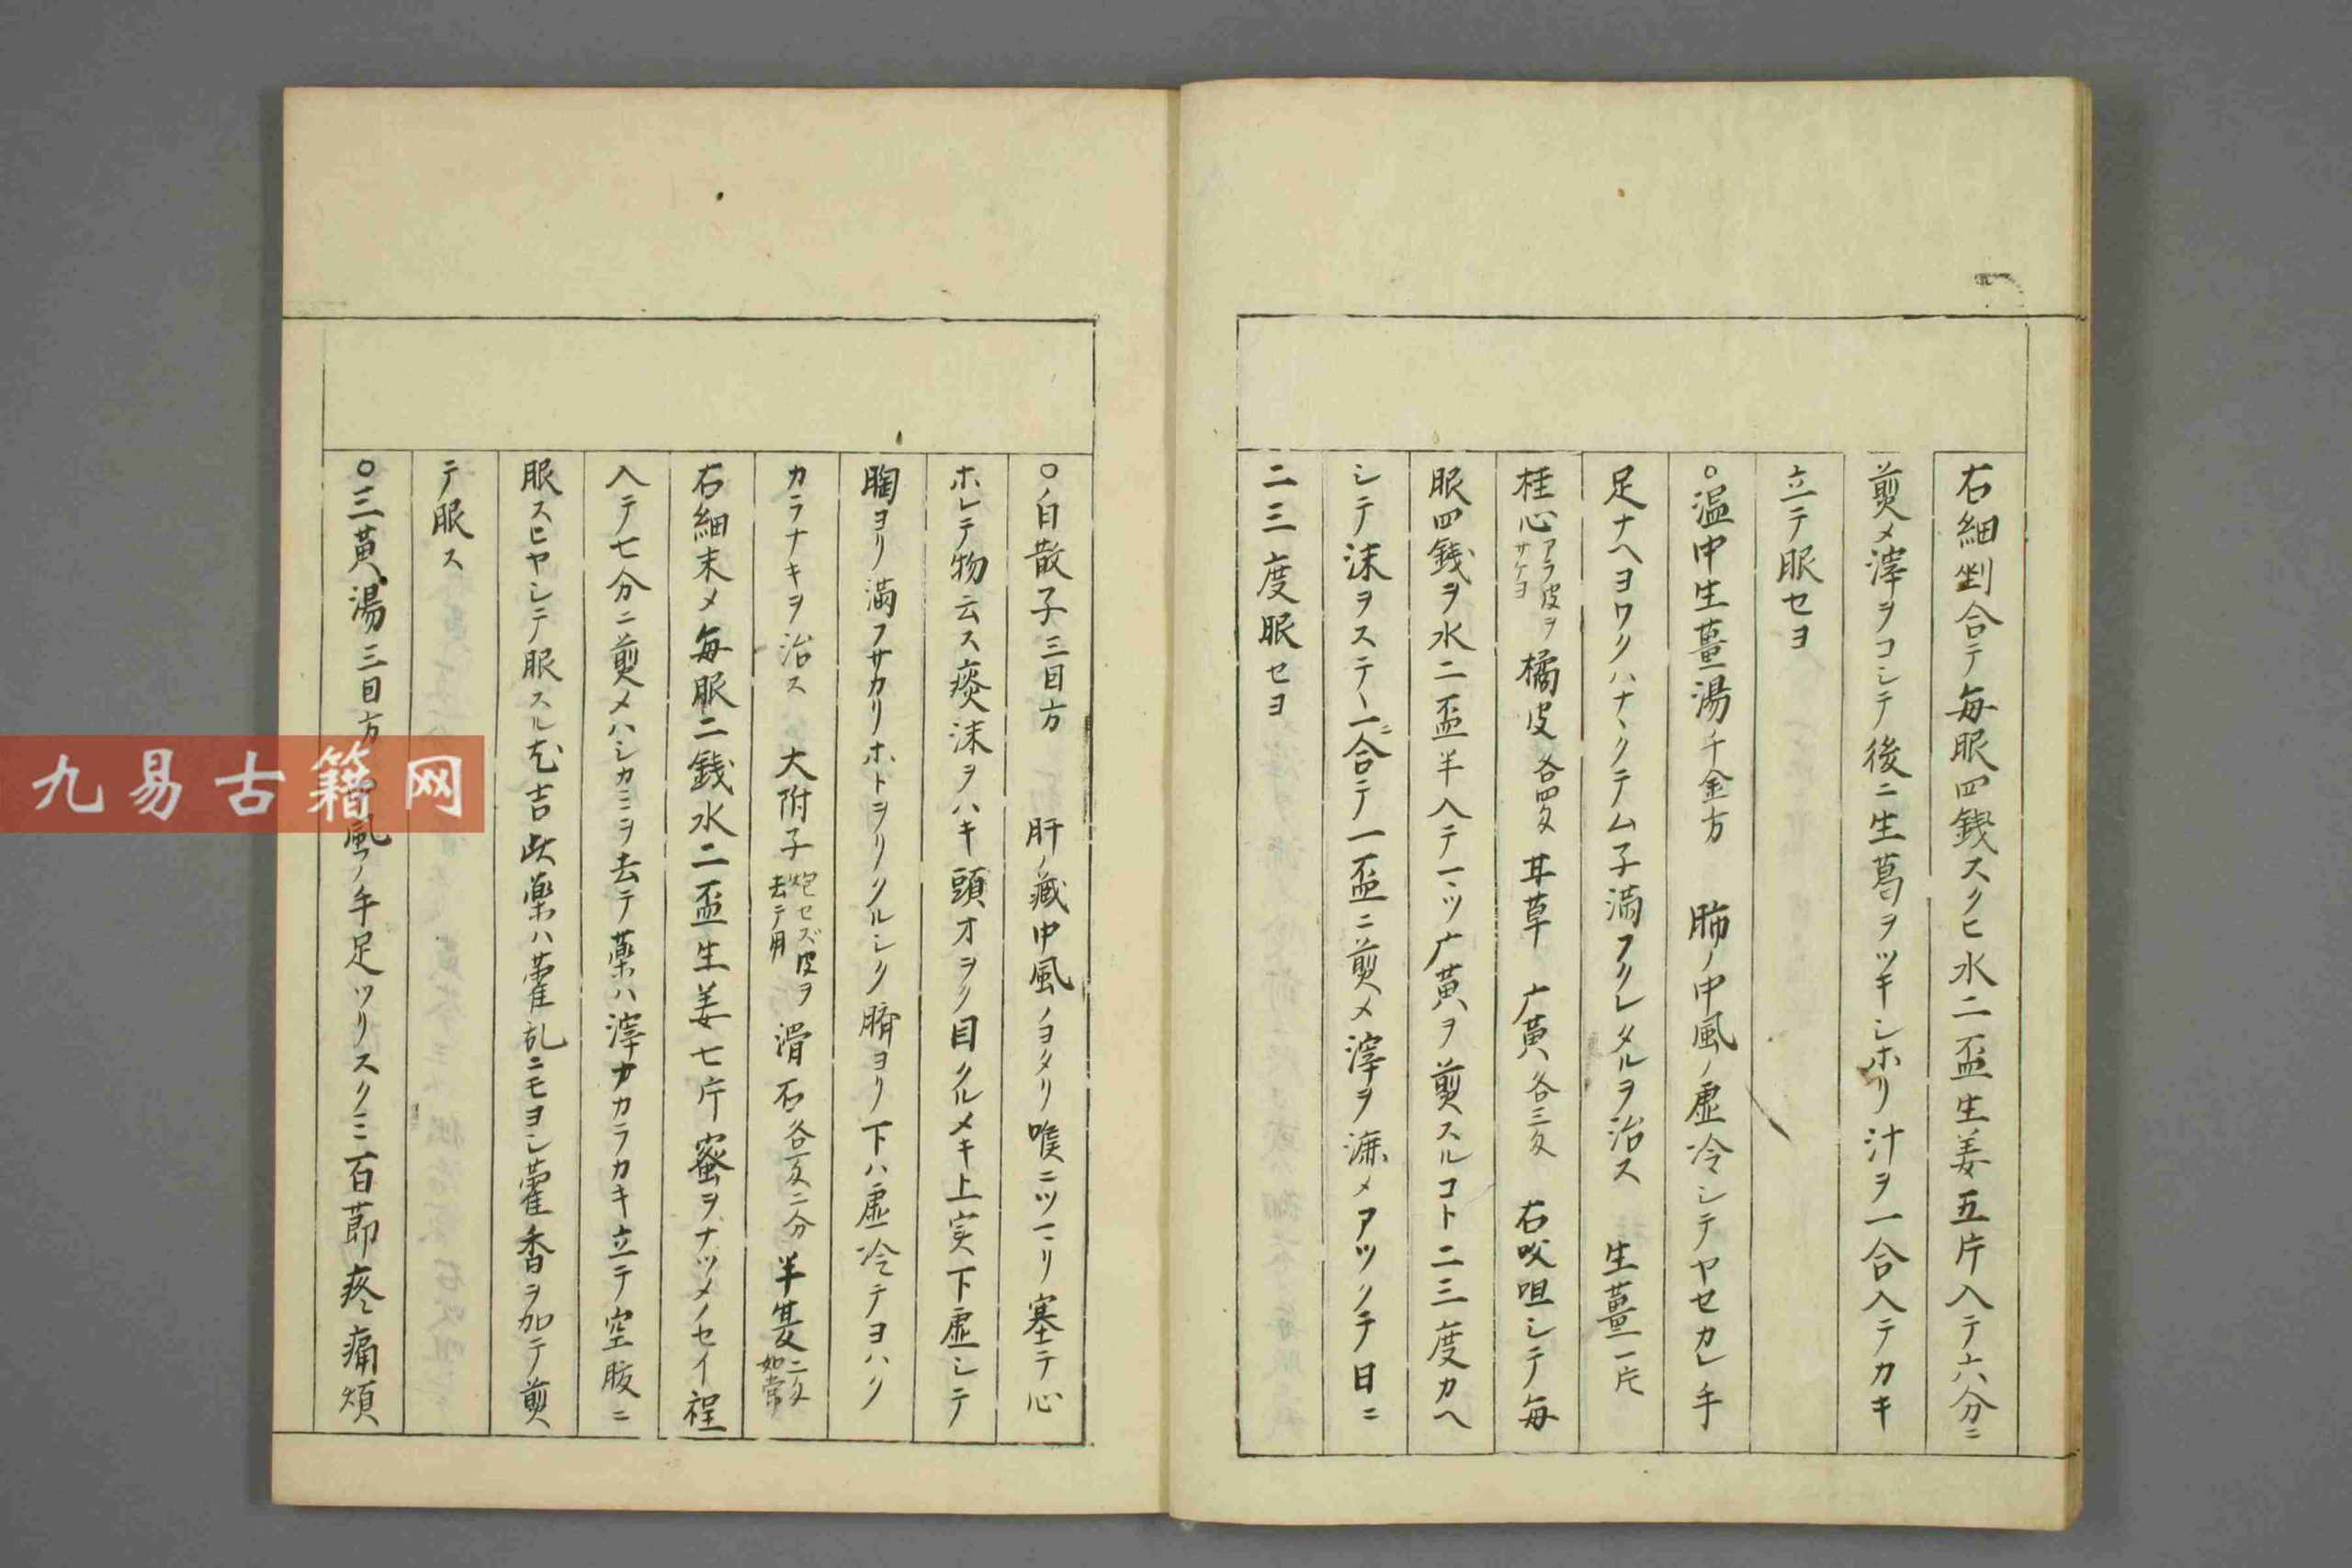 右細剉合テ毎服四銭スクヒ水二盃生姜五片入テ六分ニ
煎メ滓ヲコシテ後ニ生葛ヲツキシホリ汁ヲ一合入テカキ
立テ服セヨ
○温中生薑湯千金方 肺ノ中風ノ虚冷シテヤセカレ手
足ナヘヨワクハナヽクテム子満フクレタルヲ治ス 生薑一片
桂心アラ皮ヲサケヨ橘皮各四攵 甘草 广黄各三攵 右㕮咀シテ毎
服四銭ヲ水二盃半入テ一ツ广黄ヲ煎スルコト二三度カヘ
シテ沫ヲステヽ一合テ一盃ニ煎メ滓ヲ漉メアツクテ日ニ
二三度服セヨ
○白散子三因方 肝ノ藏中風ノヨタリ喉ニツマリ塞テ心
ホレテ物云ス痰沫ヲハキ頭オヲク目クルメキ上実下虚シテ
胸ヨリ満フサカリホトヲリクルシク臍ヨリ下ハ虚冷テヨハク
カラナキヲ治ス 大附子炮セズ皮ヲ去テ用 滑石各攵二分 半夏二攵如常
右細末メ毎服二銭水二盃生姜七片蜜ヲナツメノセイ程
入テ七分ニ煎メハシカミヲ去テ薬ハ滓カカラカキ立テ空腹ニ
服スヒヤシテ服スル尤吉此薬ハ藿乱ニモヨシ藿香ヲ加テ煎
テ服ス
○三黄湯三因方 風ノ手足ツリスクミ百節疼痛煩
九易古籍网